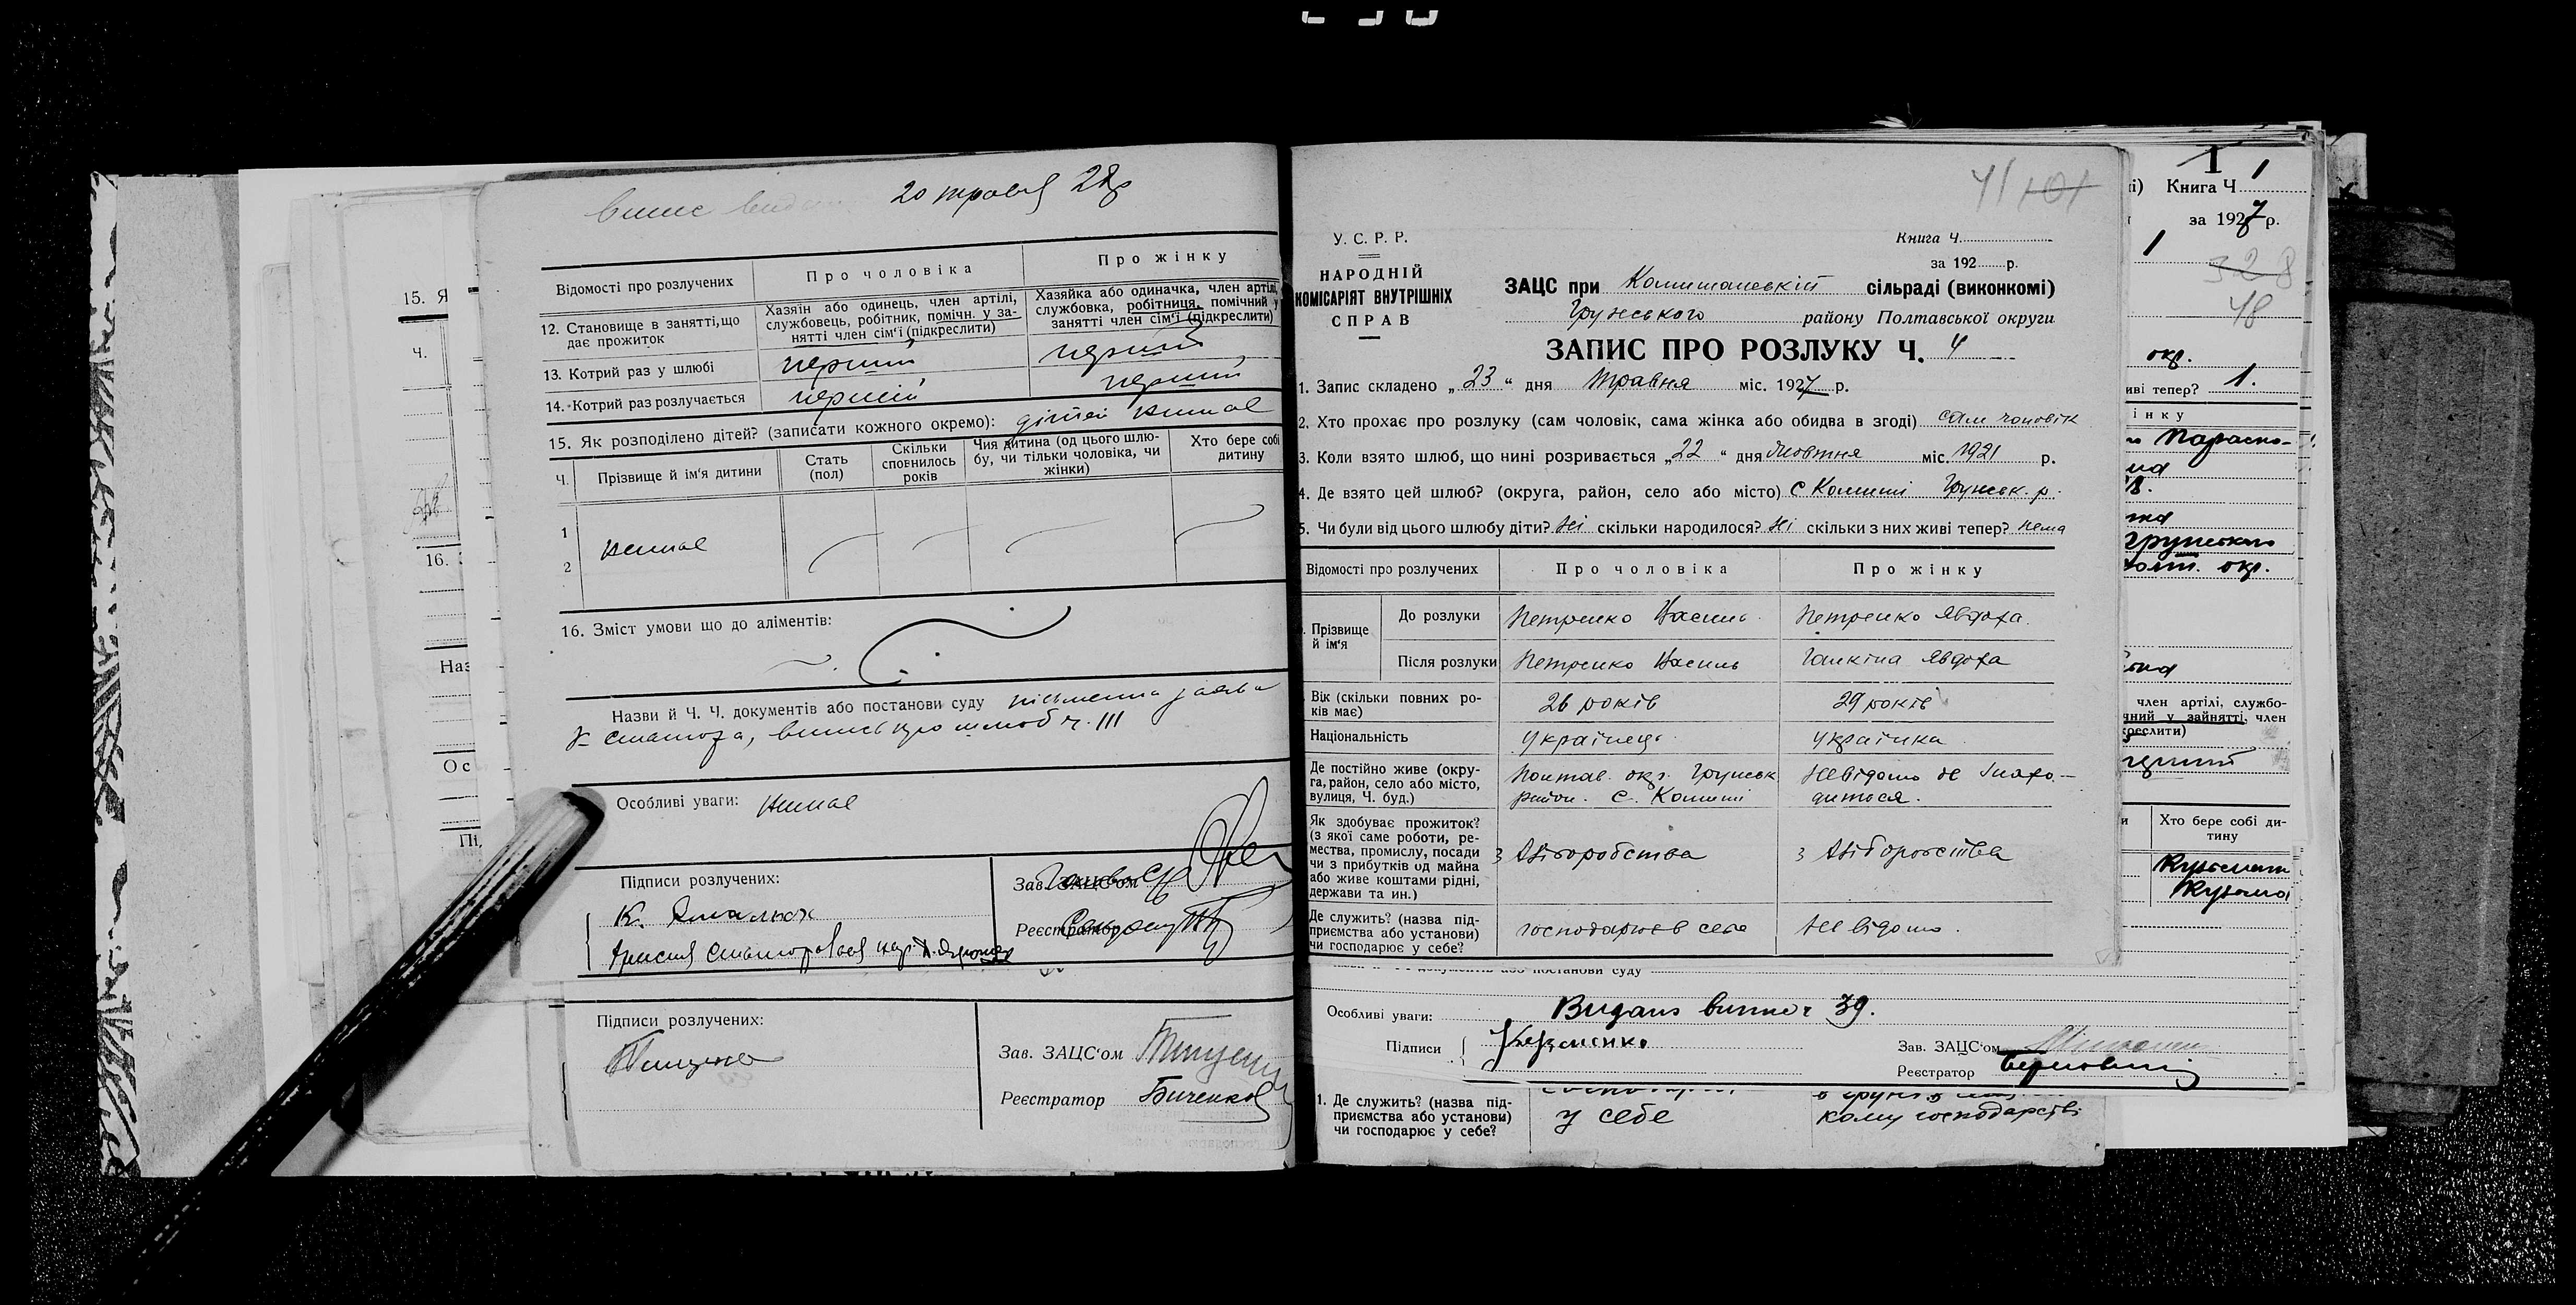 20 травня 28р
Відомості про розлучених
Про чоловіка
Про жінку
12. Становище в занятті, що дає прожиток
Хазяїн або одинець, член артілі, службовець, робітник, помічн. у занятті член сім'ї (підкреслити)
Хазяйка або одиначка, член артілі, службовка, робітниця, помічний у занятті член сім'ї (підкреслити)
13. Котрий раз у шлюбі
перший
перший
14. Котрий раз розлучається
перший
перший
15. Як розподілено дітей? (записати кожного окремо): дітей немає
Ч.
Прізвище й ім'я дитини
Стать (пол)
Скільки сповнилось років
Чия дитина (од цього шлюбу, чи тільки чоловіка, чи жінки)
Хто бере собі дитину
1
2
немає
16. Зміст умови що до аліментів:
Назви й Ч. Ч. документів або постанови суду письменна заява
випись про шлюб ч. 111
Особливі уваги: немає
Підписи розлучених:
Зав. ЗАЦС'ом
Реєстратор
Підписи розлучених:
Зав. ЗАЦС'ом
Реєстратор Биченко
15. Я
Ч.
16.
Наз
Ос
41 101
У. С. Р. Р.
НАРОДНІЙ
КОМІСАРІЯТ ВНУТРІШНІХ
СПРАВ
Книга Ч.
за 192 р.
ЗАЦС при Комишанській сільраді (виконкомі)
Грунського району Полтавської округи
ЗАПИС ПРО РОЗЛУКУ Ч. 4
1. Запис складено „23“ дня травня міс. 1927 р.
2. Хто прохає про розлуку (сам чоловік, сама жінка або обидва в згоді) сам чоловік
3. Коли взято шлюб, що нині розривається „22“ дня жовтня міс. 1921 р.
4. Де взято цей шлюб? (округа, район, село або місто) с Комиші Грунськ. р.
5. Чи були від цього шлюбу діти? Ні скільки народилося? Ні скільки з них живі тепер? нема
Відомості про розлучених
Про чоловіка
Про жінку
Прізвище й ім'я
До розлуки
Петренко Василь
Петренко Явдоха
Після розлуки
Петренко Василь
Галкіна Явдоха
Вік (скільки повних років має)
26 років
29 років
Національність
Українець
Українка
Де постійно живе (округа, район, село або місто, вулиця, Ч. буд.)
Полтав. окр. Грунськ район. с. Комиші
Невідомо де знаходиться.
Як здобуває прожиток? (з якої саме роботи, ремества, промислу, посади чи з прибутків од майна або живе коштами рідні, держави та ин.)
з хліборобства
з хліборобства
Де служить? (назва підприємства або установи) чи господарює у себе?
господарює в себе
Не відомо.
Особливі уваги: Видано випис ч 39.
Підписи
Зав. ЗАЦС'ом
Реєстратор
1. Де служить? (назва підприємства або установи) чи господарює у себе?
у себе
кому господарстві
1
Книга Ч 1
за 1927 р.
1
328
48
окр.
иві тепер? 1.
інку
Параско-
окр.
член артілі, службо-
чний у зайнятті, член
Хто бере собі дитину